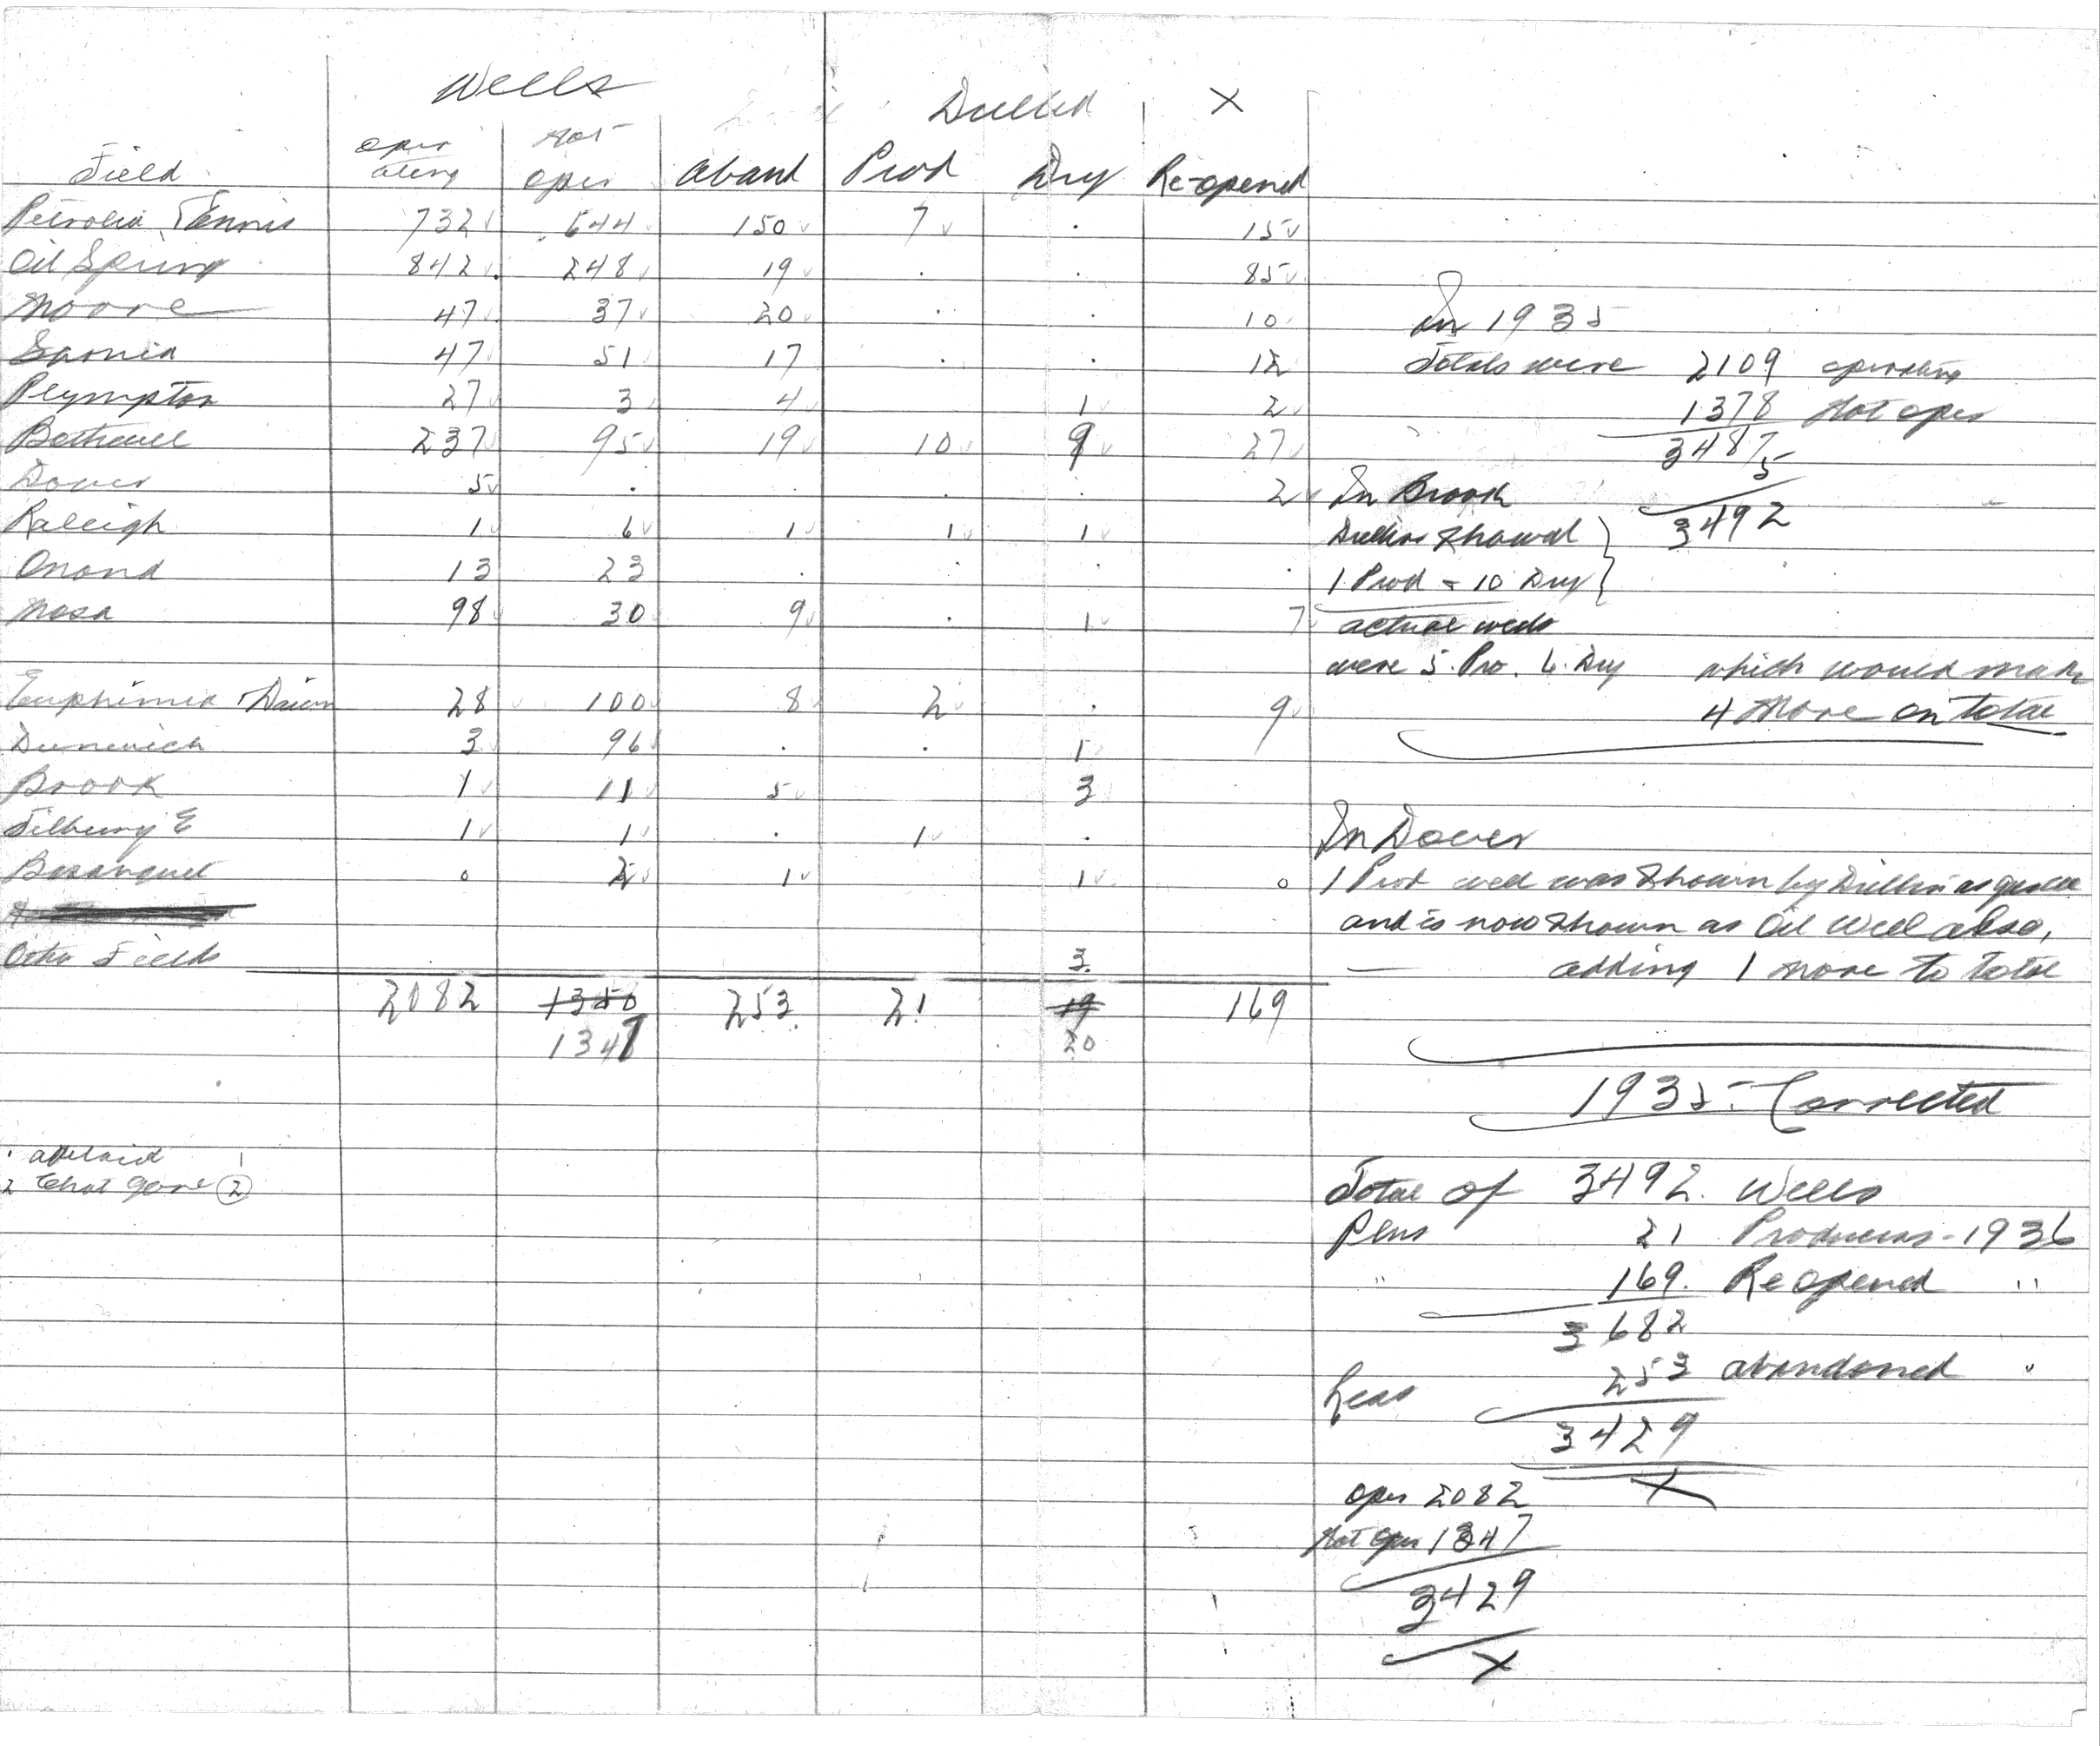 Wells Drilled X
Field oper ating Not oper aband Prod Dry Re-opened
Petrolia + Ennis 732 644 150 7 . 15
Oil Spring 842 248 19 . . 85
Moore 47 37 20 . . 10
Sarnia 47 51 17 . . 12
Plympton 27 3 4 1 2
Bothwell 237 95 19 10 9 27
Dover 5 . . . . 2
Raleigh 1 6 1 1 1
Onond 13 23 . . . .
Mosa 98 30 9 . 1 7
Euphimia + Dawn 28 100 8 2 . 9
Dunwich 3 96 . . 1
Brook 1 11 5 3
Tilbury E 1 1 . 1 .
Bosanquet 0 2 1 1 0
Other Fields 3
2082 1350 253 21 19 169
1347 20
1 adelaid 1
2 Chat Gore 2
In 1935
Totals were 2109 operating
1378 Not oper
3487
5
3492
In Brook
Drillers Showed
1 Prod - 10 Dry
actual wells
were 5. Pro. 6. Dry which would make
4 More on total
In Dover
1 Prod well was shown by Driller as gas well
and is now shown as Oil Well also,
adding 1 more to total
1935- Corrected
Total of 3492. Wells
Plus 21 Producers - 1936
" 169. Re opened "
3682
Less 253 abandoned "
3429
X
oper 2082
Not oper 1347
3429
X